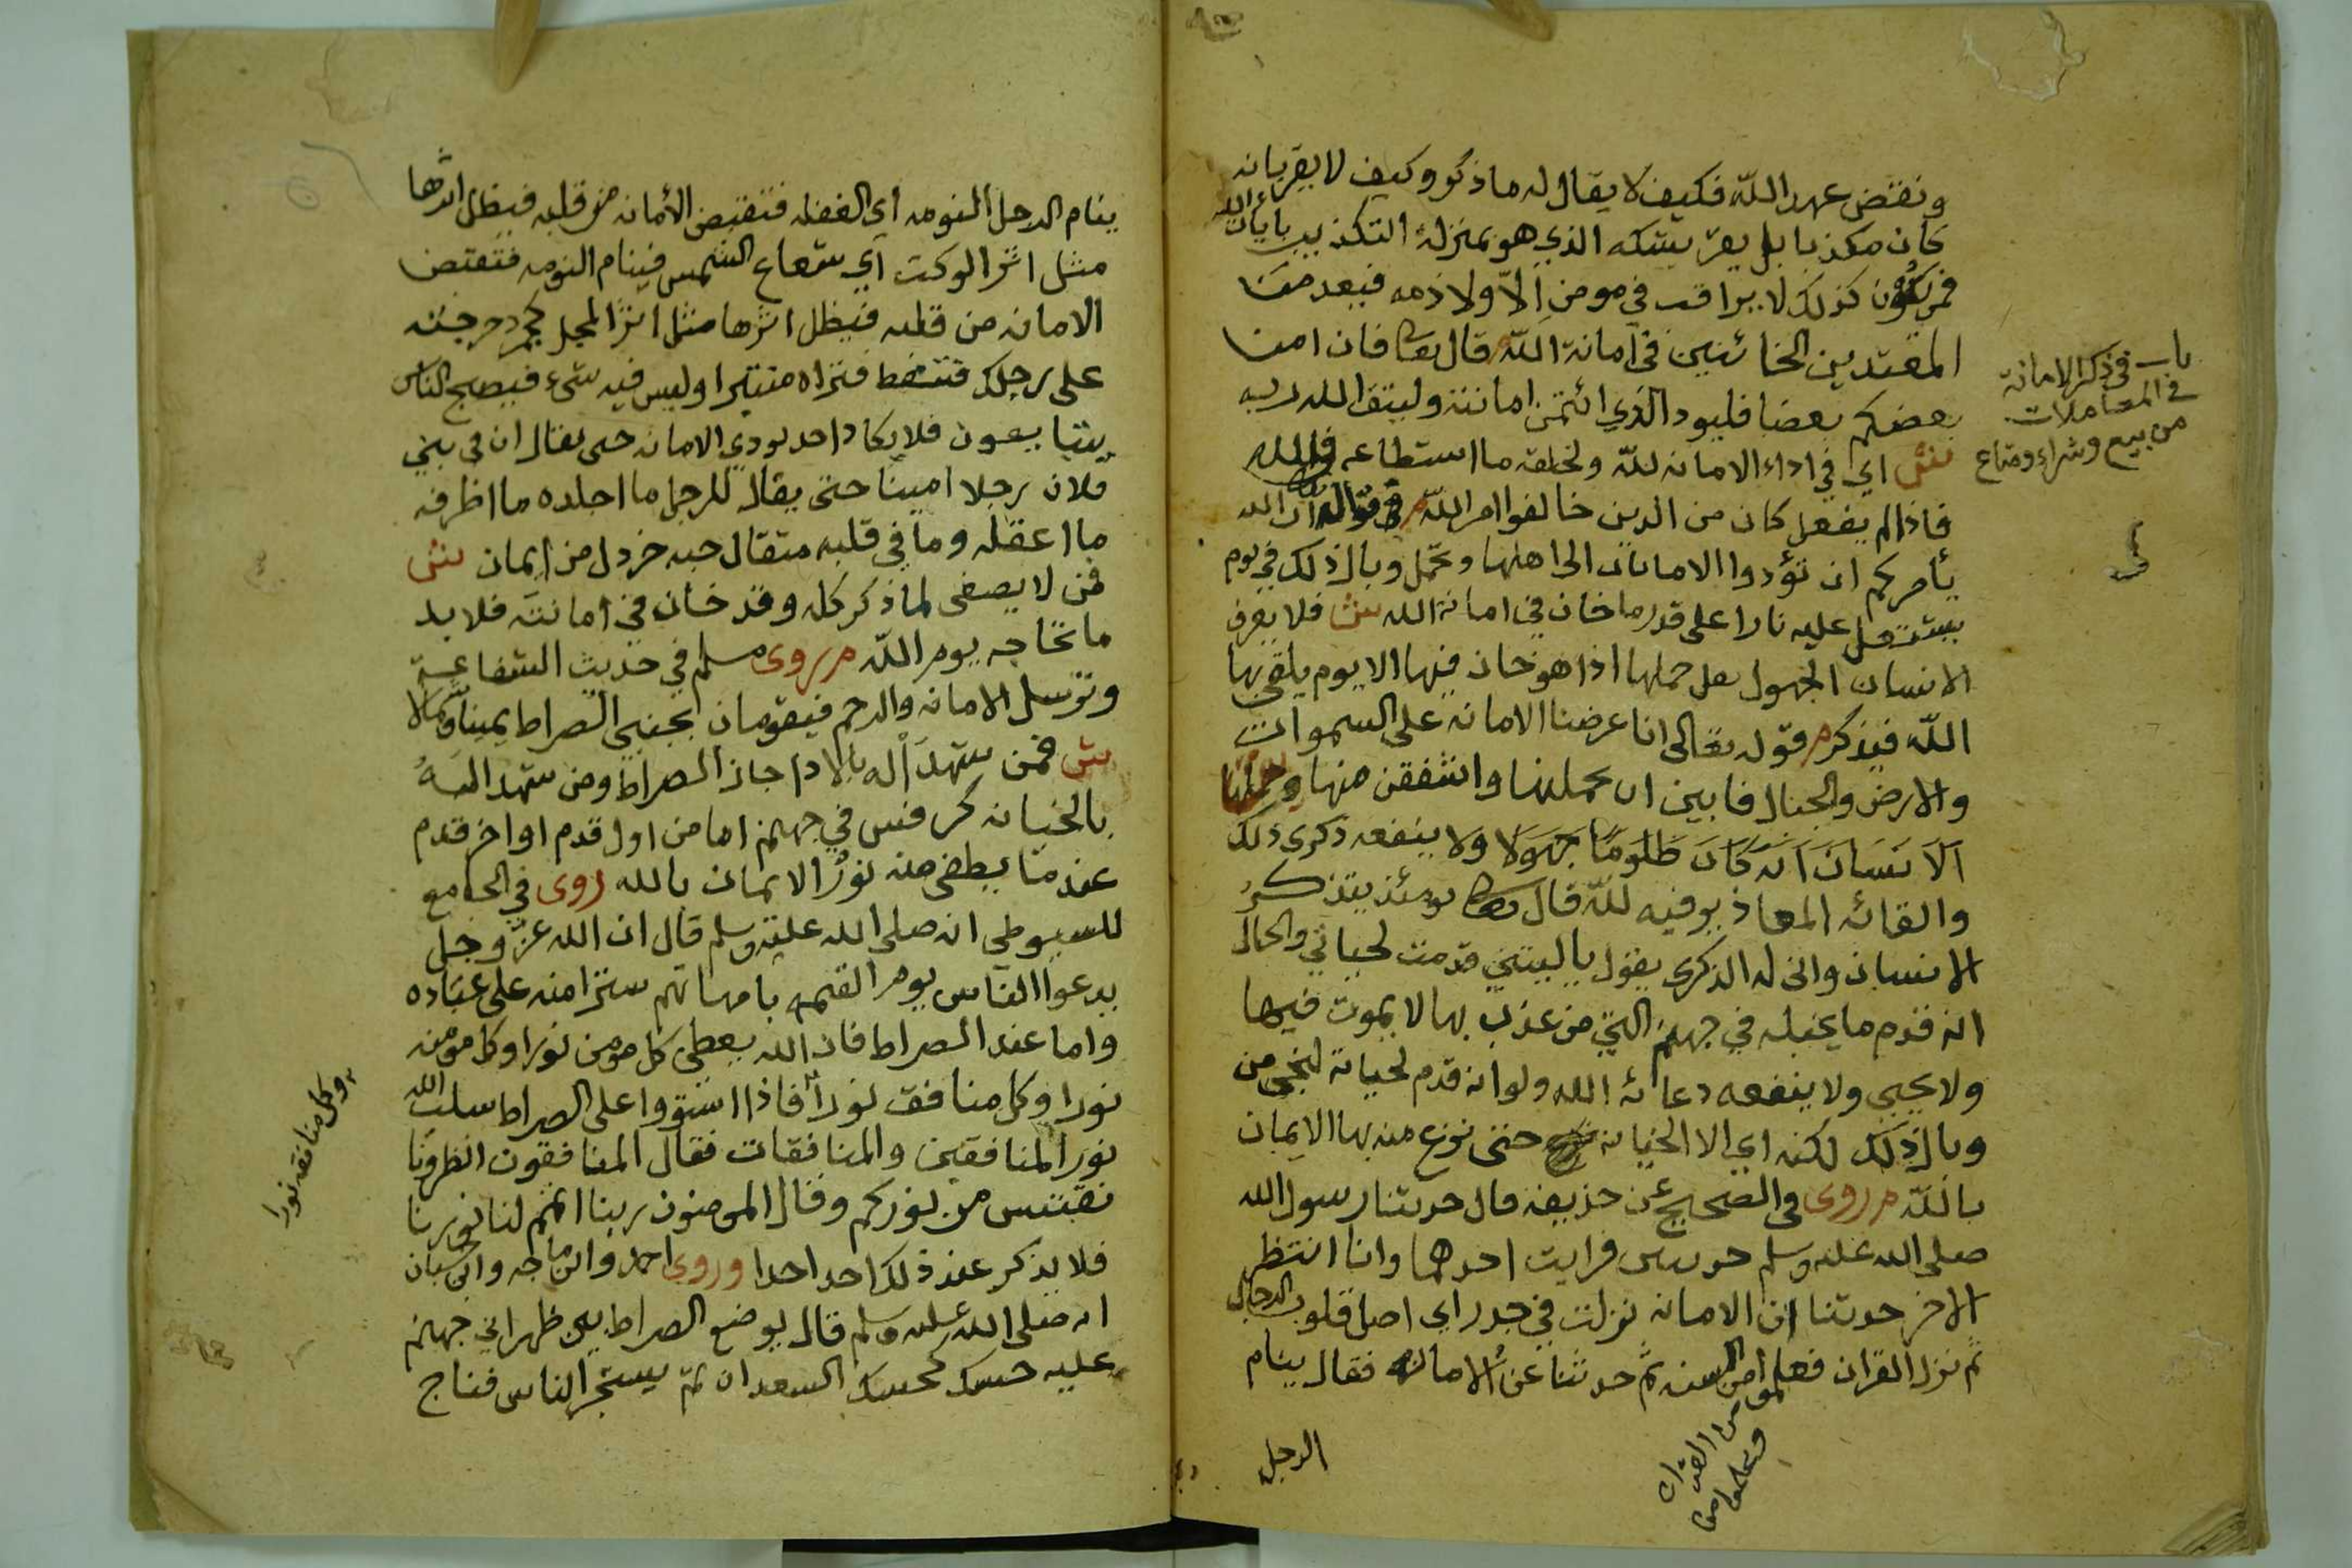 ونقض عهد اللّه فكيف لا يقال له ماذكر وكيف لا يقرّ بانه
كان مكذبا بل يقرّ بشكه الذي هو بمنزلة التكذيب بايات الله
فمن يكون كذلك لا يراقب في مومن إلاّ ولا ذمه فيعد من
المعتدين الخائنين في أمانة اللّه م قال تعا فان امن
بعضكم بعضا فليود الذي ائتمن امانته وليتق الله ربه
ش اي في اداء الامانه للّه ولخلقه ما استطاعه
فاذا لم يفعل كان من الذين خالفوا امر اللّه م في قوله ان الله
يأمركم ان تؤدوا الامانات الى اهلها وتحمل وبال ذلك في يوم
يشتعل عليه نارا على قدر ما خان في امانة الله ش فلا يعرف
الانسان الجهول حملها اذا هو خان فيها الا يوم يلقى بها
اللّه فيذكر م قوله تعالى انا عرضنا الامانه على السموات
والارض والجبال فابين ان يحملنها واشفقن منها وحملها
الانسان انه كان ظلوما جهولا ولا ينفعه ذكرى ذلك
والقائه المعاذير فيه للّه قال تعا يومئذ يتذكر
الانسان وانى له الذكرى يقول ياليتني قدمت لحياتي والحال
انه قدم ما يخبله في جهنم التي من عذب بها لا يموت فيها
ولا يحيى ولا ينفعه دعائه الله ولو انه قدم لحياته لنجى من
وبال ذلك لكنه اي الا الخيانه حتى نزع منه بها الايمان
باللّه م روى في الصحيح عن حذيفه قال حدثنا رسول الله
صلى الله عليه وسلم حديثين فرايت احدهما وانا انتظر
الاخر حدثنا ان الامانه نزلت في جذر اي اصل قلوب الرجال
ثم نزل القران فعلموا من السنه ثم حدثنا عن الامانه فقال ينام
الرجل
باب في ذكر الامانة
في المعاملات
من بيع وشراء ومتاع
من القران
وعلموا من
ينام الرجل النومه اي الغفله فتقبض الأمانه من قلبه فيظل اثرها
مثل اثر الوكت اي شعاع الشمس فينام النومه فتقبض
الامانه من قلبه فيظل اثرها مثل اثر المجل كجمر دحرجته
على رجلك فتنفط فتراه منتبرا وليس فيه شيء فيصبح الناس
يتبايعون فلا يكاد احد يودي الامانه حتى يقال ان في بني
فلان رجلا امينا حتى يقال للرجل ما اجلده ما اظرفه
ما اعقله وما في قلبه مثقال حبه خردل من ايمان ش
فمن لا يصغى لما ذكر كله وقد خان في امانته فلا بد
ما تحاجه يوم اللّه م روى مسلم في حديث الشفاعة
وترسل الامانه والرحم فيقومان بجنبي الصراط يمينا وشمالا
ش فمن شهد اله بالادا جاز الصراط ومن شهد اليه
بالخيانه كرفس في جهنم اما من اول قدم او اخر قدم
عندما يطفى منه نور الايمان بالله روى في الجامع
للسيوطي انه صلى الله عليه وسلم قال ان الله عز وجل
يدعوا الناس يوم القيمه بامهاتهم سترا منه على عباده
واما عند الصراط فان الله يعطي كل مومن نورا وكل مومنه
نورا وكل منافق نورا فاذا استووا على الصراط سلب الله
نور المنافقين والمنافقات فقال المنافقون انظرونا
نقتبس من نوركم وقال المومنون ربنا اتمم لنا نورنا
فلا يذكر عند ذلك احد احدا وروى احمد وابن ماجه وابن حبان
انه صلى الله عليه وسلم قال يوضع الصراط بين ظهراني جهنم
عليه حسك كحسك السعدان ثم يستجز الناس فناج
وكل منافقه نورا